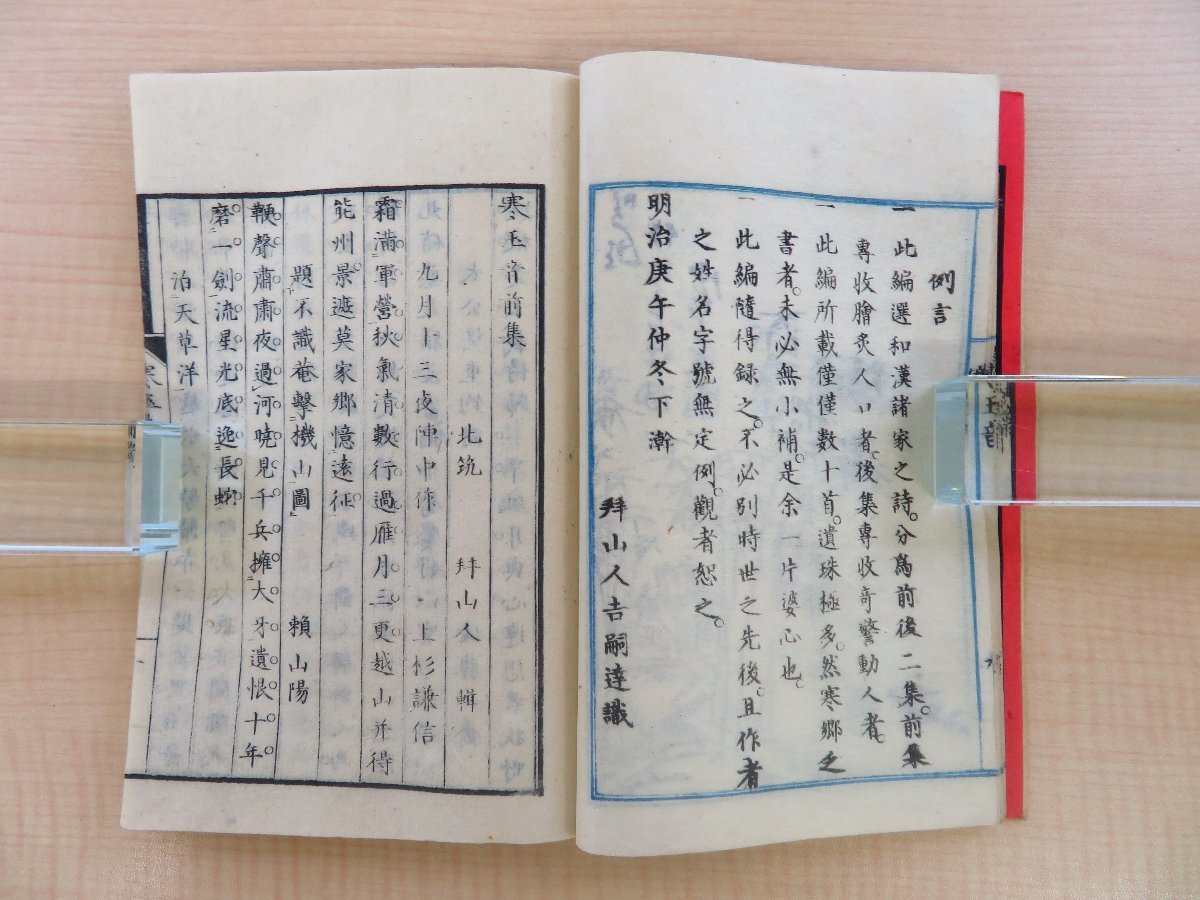 例言
一 此編選和漢諸家之詩。分為前後二集。前集
專收膾炙人口者。後集專收奇警動人者。
一 此編所載僅僅數十首。遺珠極多。然寒鄉之
書者。未必無小補。是余一片婆心也。
一 此編隨得録之。不必別時世之先後。且作者
之姓名字號無定例。觀者恕之。
明治庚午仲冬下澣
拜山人吉嗣達識
寒玉音前集
北筑 拜山人 輯
九月十三夜陣中作 上杉謙信
霜滿軍營秋氣清。數行過雁月三更。越山并得
能州景。遮莫家鄉憶遠征。
題不識菴擊機山圖 賴山陽
鞭聲肅肅夜過河。曉見千兵擁大牙。遺恨十年
磨一劍。流星光底逸長蛇。
泊天草洋